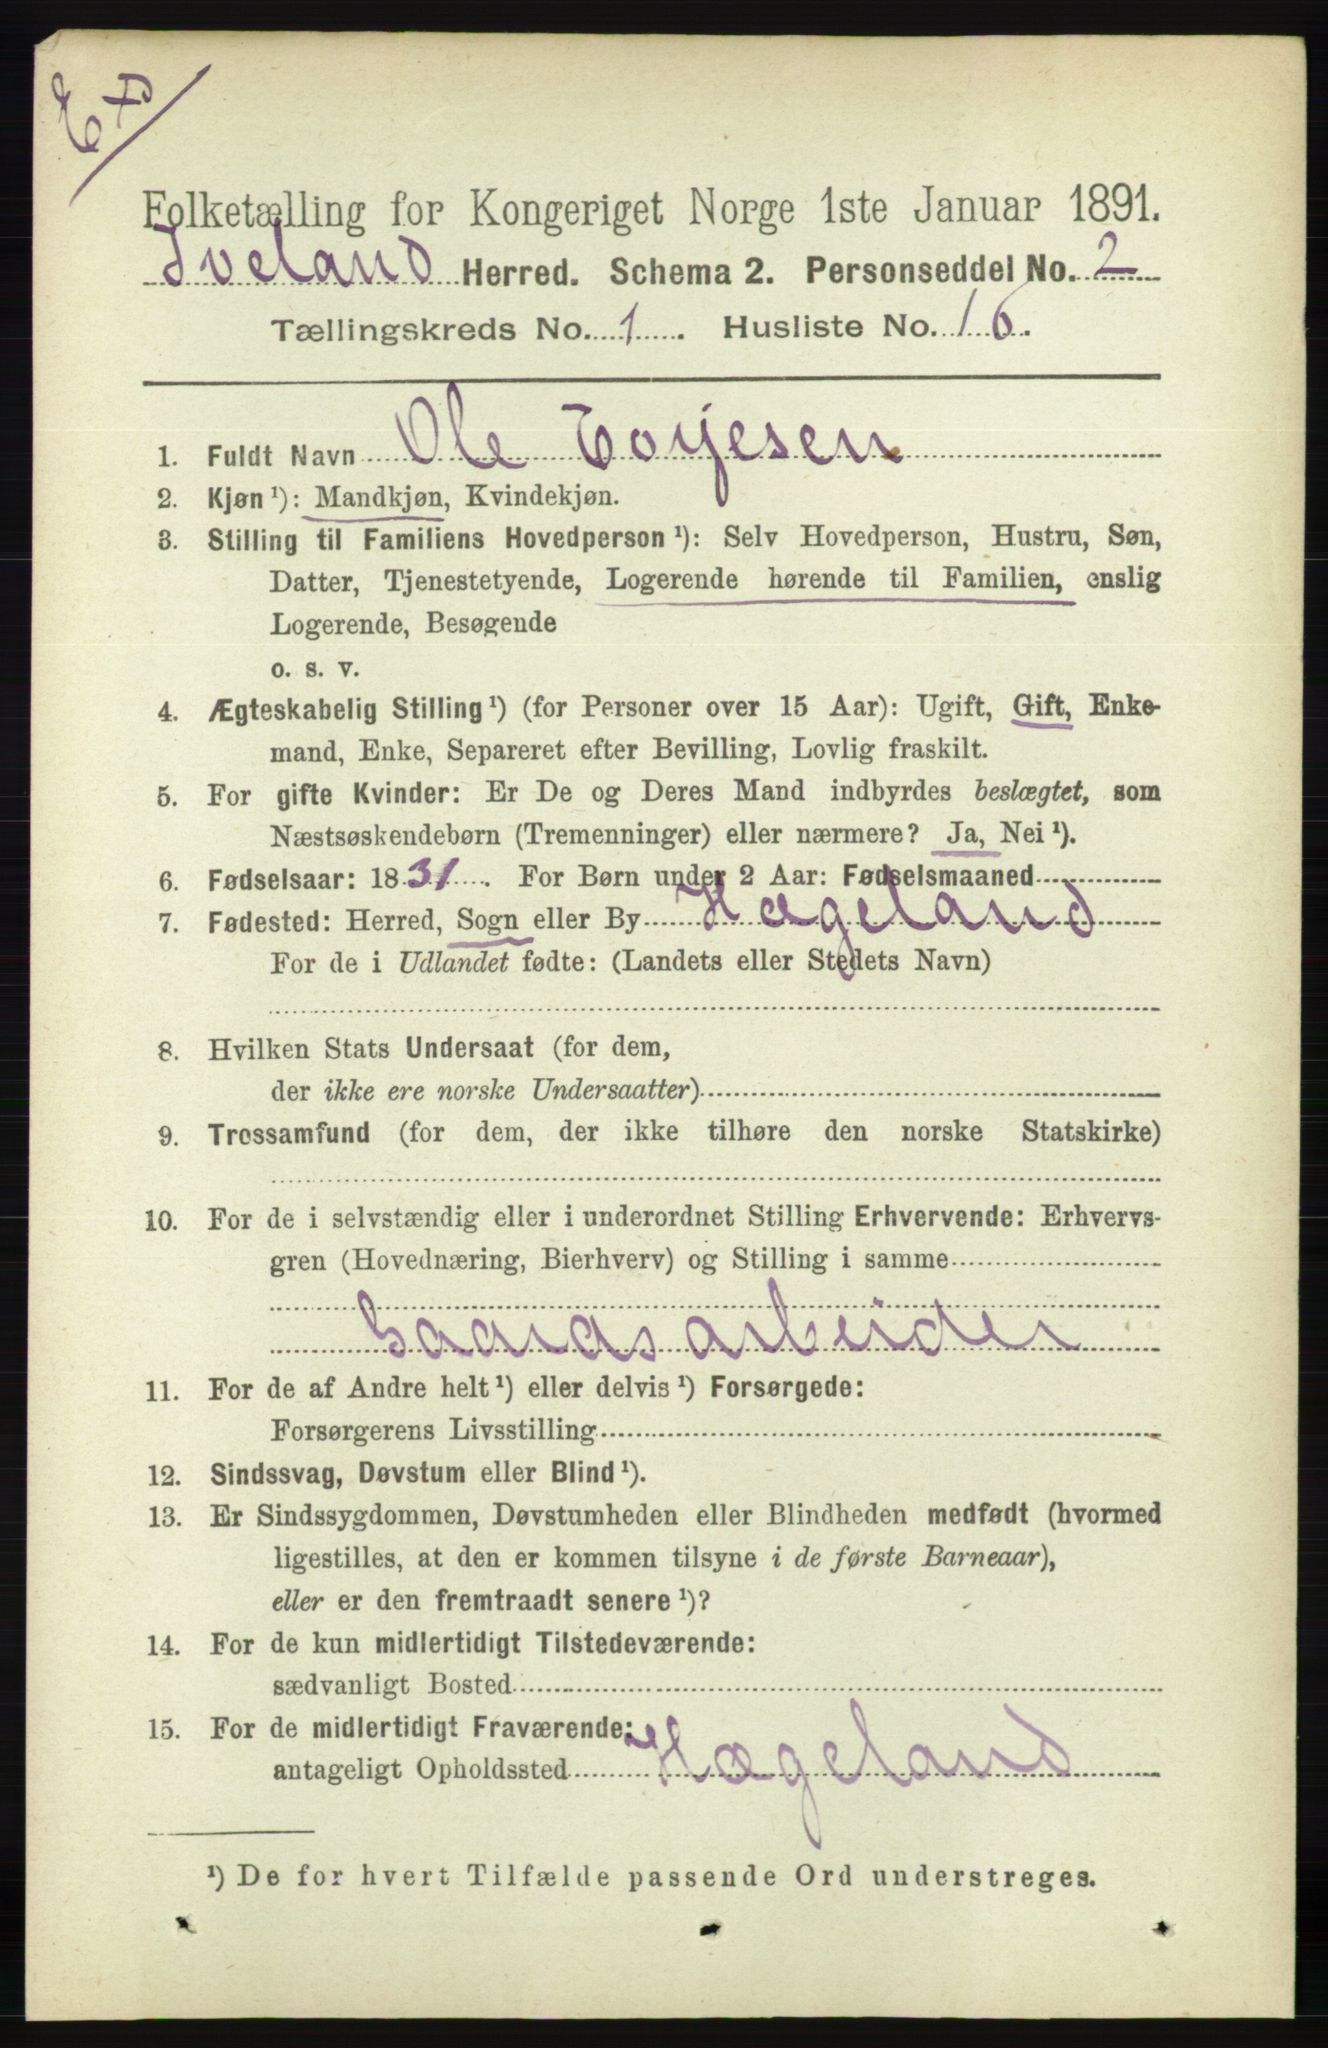 Exp
Folketælling for Kongeriget Norge 1ste Januar 1891.
Iveland Herred. Schema 2. Personseddel No. 2
Tællingskreds No. 1. Husliste No. 16.
1. Fuldt Navn Ole Torjesen
2. Kjøn ¹): Mandkjøn, Kvindekjøn.
3. Stilling til Familiens Hovedperson ¹): Selv Hovedperson, Hustru, Søn,
Datter, Tjenestetyende, Logerende hørende til Familien, enslig
Logerende, Besøgende
o. s. v.
4. Ægteskabelig Stilling ¹) (for Personer over 15 Aar): Ugift, Gift, Enke-
mand, Enke, Separeret efter Bevilling, Lovlig fraskilt.
5. For gifte Kvinder: Er De og Deres Mand indbyrdes beslægtet, som
Næstsøskendebørn (Tremenninger) eller nærmere? Ja, Nei ¹).
6. Fødselsaar: 1831. For Børn under 2 Aar: Fødselsmaaned
7. Fødested: Herred, Sogn eller By Hægeland
For de i Udlandet fødte: (Landets eller Stedets Navn)
8. Hvilken Stats Undersaat (for dem,
der ikke ere norske Undersaatter)
9. Trossamfund (for dem, der ikke tilhøre den norske Statskirke)
10. For de i selvstændig eller i underordnet Stilling Erhvervende: Erhvervs-
gren (Hovednæring, Bierhverv) og Stilling i samme
Gaardsarbeider
11. For de af Andre helt ¹) eller delvis ¹) Forsørgede:
Forsørgerens Livsstilling
12. Sindssvag, Døvstum eller Blind ¹).
13. Er Sindssygdommen, Døvstumheden eller Blindheden medfødt (hvormed
ligestilles, at den er kommen tilsyne i de første Barneaar),
eller er den fremtraadt senere ¹)?
14. For de kun midlertidigt Tilstedeværende:
sædvanligt Bosted
15. For de midlertidigt Fraværende:
antageligt Opholdssted Hægeland
¹) De for hvert Tilfælde passende Ord understreges.